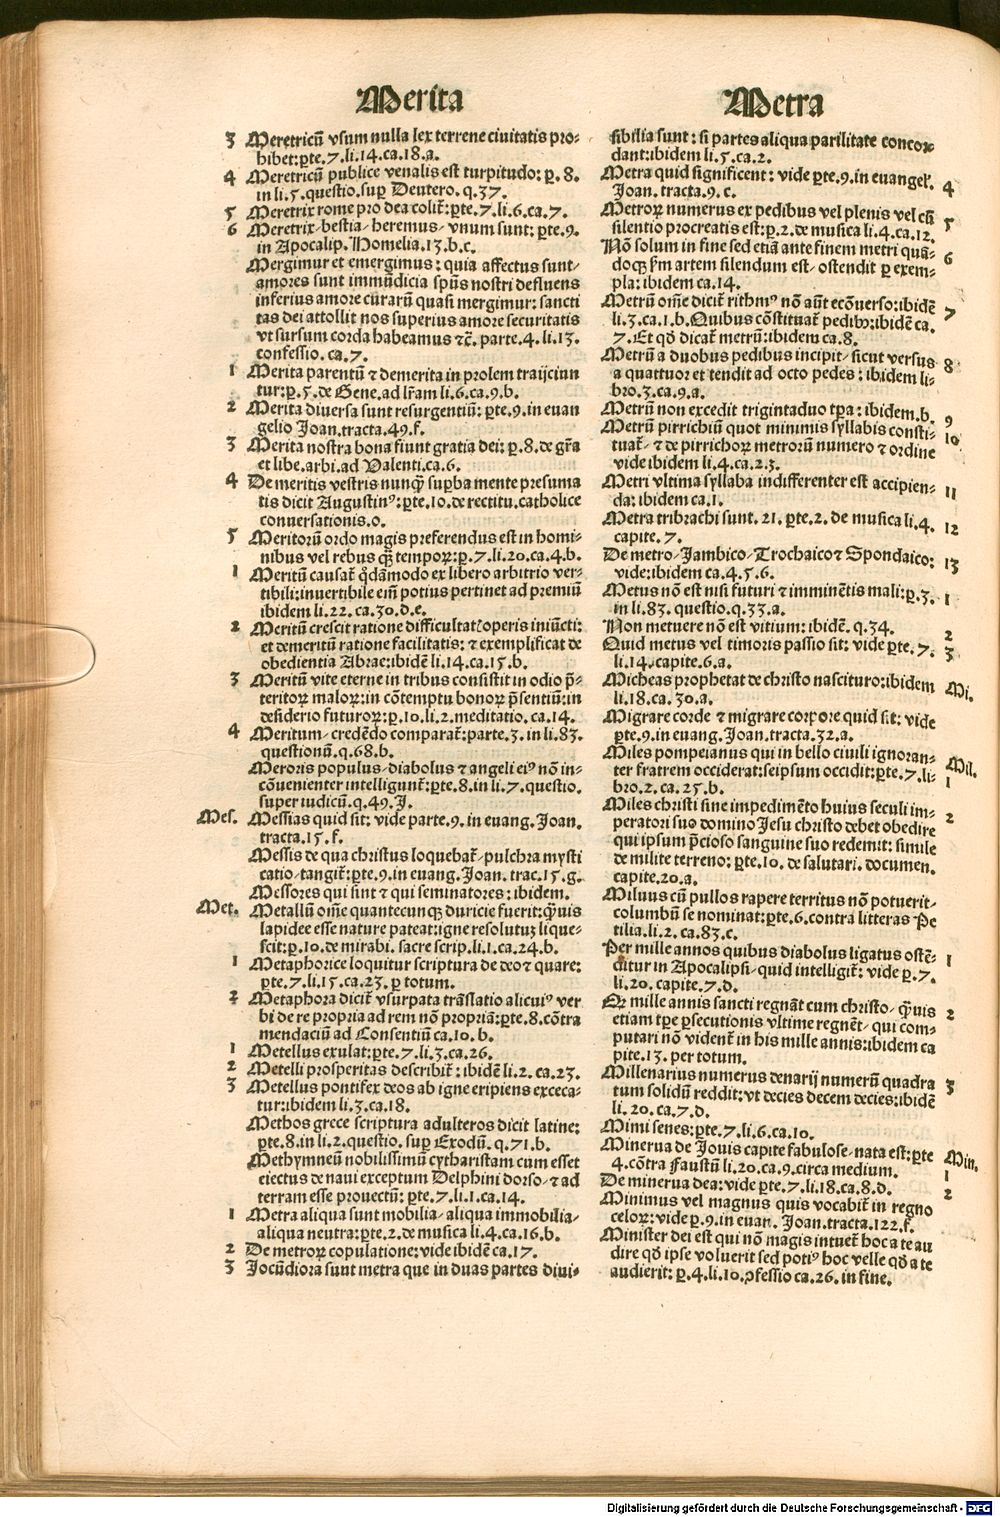 Merita
3 Meretricū vsum nulla lex terrene ciuitatis pro-
hibet:ꝑte.7.li.14.ca.18.a.
4 Meretricū publice venalis est turpitudo: p.8.
in li.5.questio.suꝑ Deutero.q.37.
5 Meretrix rome pro dea colit̃:ꝑte.7.li.6.ca.7.
6 Meretrix/bestia/heremus/vnum sunt: ꝑte.9.
in Apocalip.Homelia.13.b.c.
Mergimur et emergimus: quia affectus sunt/
amores sunt immūdicia spūs nostri defluens
inferius amore curarū quasi mergimur: sancti
tas dei attollit nos superius amore securitatis
vt sursum corda habeamus ⁊c̃. parte.4.li.13.
confessio.ca.7.
1 Merita parentū ⁊ demerita in prolem traijciun
tur:p.5.de Gene.ad lr̄am li.6.ca.9.b.
2 Merita diuersa sunt resurgentiū: ꝑte.9.in euan
gelio Joan.tracta.49.f.
3 Merita nostra bona fiunt gratia dei: p.8.de gr̄a
et libe.arbi.ad Valenti.ca.6.
4 De meritis vestris nunq̄ suꝑba mente presuma
tis dicit Augustinꝰ:ꝑte.10.de rectitu.catholice
conuersationis.o.
5 Meritorū ordo magis preferendus est in homi-
nibus vel rebus q̄ꝫ tempoꝝ:p.7.li.20.ca.4.b.
1 Meritū causat̃ q̊dāmodo ex libero arbitrio ver-
tibili:inuertibile eīm potius pertinet ad premiū
ibidem li.22.ca.30.d.e.
2 Meritū crescit ratione difficultat̃ operis iniūcti:
et demeritū ratione facilitatis: ⁊ exemplificat de
obedientia Abrae:ibidē li.14.ca.15.b.
3 Meritū vite eterne in tribus consistit in odio p̄-
teritoꝝ maloꝝ:in cōtemptu bonoꝝ p̄sentiū:in
desiderio futuroꝝ:p.10.li.2.meditatio.ca.14.
4 Meritum/credēdo comparat̃:parte.3.in li.83.
questionū.q.68.b.
Meroris populus/diabolus ⁊ angeli eiꝰ nō in-
cōuenienter intelligunt̃:ꝑte.8.in li.7.questio.
super iudicū.q.49.J.
Mes. Messias quid sit: vide parte.9.in euang.Joan.
tracta.15.f.
Messis de qua christus loquebat̃/pulchra mysti
catio/tangit̃:ꝑte.9.in euang.Joan.trac.15.g.
Messores qui sint ⁊ qui seminatores: ibidem.
Met. Metallū om̄e quantecunqꝫ duricie fuerit:q̄uis
lapidee esse nature pateat:igne resolutuꝫ lique-
scit:p.10.de mirabi.sacre scrip.li.1.ca.24.b.
1 Metaphorice loquitur scriptura de deo ⁊ quare:
ꝑte.7.li.15.ca.23.ꝑ totum.
2 Metaphora dicit̃ vsurpata trāslatio alicuiꝰ ver
bi de re propria ad rem nō propriā:ꝑte.8.cōtra
mendaciū ad Consentiū ca.10.b.
1 Metellus exulat:ꝑte.7.li.3.ca.26.
2 Metelli prosperitas describit̃: ibidē li.2.ca.23.
3 Metellus pontifex deos ab igne eripiens exceca-
tur:ibidem li.3.ca.18.
Methos grece scriptura adulteros dicit latine:
ꝑte.8.in li.2.questio.suꝑ Exodū.q.71.b.
Methymneū nobilissimū cytharistam cum esset
eiectus de naui exceptum Delphini dorso/⁊ ad
terram esse prouectū: ꝑte.7.li.1.ca.14.
1 Metra aliqua sunt mobilia/aliqua immobilia/
aliqua neutra:ꝑte.2.de musica li.4.ca.16.b.
2 De metroꝝ copulatione:vide ibidē ca.17.
3 Jocūdiora sunt metra que in duas partes diui-
Metra
sibilia sunt: si partes aliqua parilitate concor-
dant:ibidem li.5.ca.2.
Metra quid significent: vide ꝑte.9.in euangel. 4
Joan.tracta.9.c.
Metroꝝ numerus ex pedibus vel plenis vel cū 5
silentio procreatis est:p.2.de musica li.4.ca.12.
Nō solum in fine sed etiā ante finem metri quā- 6
doqꝫ ẜm artem silendum est/ostendit ꝑ exem-
pla: ibidem ca.14.
Metrū om̄e dicit̃ rithmꝰ nō aūt ecōuerso:ibidē 7
li.3.ca.1.b.Quibus cōstituat̃ pedibꝰ:ibidē ca.
7.Et qđ dicat̃ metrū:ibidem ca.8.
Metrū a duobus pedibus incipit/sicut versus 8
a quattuor et tendit ad octo pedes: ibidem li-
bro.3.ca.9.a.
Metrū non excedit trigintaduo tp̄a: ibidem.b. 9
Metrū pirrichiū quot minimis syllabis consti- 10
tuat̃/⁊ de pirrichoꝝ metrorū numero ⁊ ordine
vide ibidem li.4.ca.2.3.
Metri vltima syllaba indifferenter est accipien- 11
da: ibidem ca.1.
Metra tribrachi sunt.21.ꝑte.2.de musica li.4. 12
capite.7.
De metro/Jambico/Trochaico ⁊ Spondaico: 13
vide:ibidem ca.4.5.6.
Metus nō est nisi futuri ⁊ imminētis mali:p.3. 1
in li.83.questio.q.33.a.
Non metuere nō est vitium: ibidē.q.34. 2
Quid metus vel timoris passio sit: vide ꝑte.7. 3
li.14.capite.6.a.
Micheas prophetat de christo nascituro:ibidem Mi.
li.18.ca.30.a.
Migrare corde ⁊ migrare corpore quid sit: vide
ꝑte.9.in euang.Joan.tracta.32.a.
Miles pompeianus qui in bello ciuili ignoran- Mil.
ter fratrem occiderat:seipsum occidit:ꝑte.7.li- 1
bro.2.ca.25.b.
Miles christi sine impedimēto huius seculi im- 2
peratori suo domino Jesu christo debet obedire
qui ipsum p̄cioso sanguine suo redemit: simile
de milite terreno: ꝑte.10.de salutari.documen.
capite.20.a.
Miluus cū pullos rapere territus nō potuerit/
columbū se nominat:ꝑte.6.contra litteras Pe
tilia.li.2.ca.83.c.
Per mille annos quibus diabolus ligatus ostē- 1
ditur in Apocalypsi/quid intelligit̃: vide p.7.
li.20.capite.7.d.
Qđ mille annis sancti regnāt cum christo/q̄uis 2
etiam tp̄e ꝑsecutionis vltime regnēt/qui com-
putari nō vident̃ in his mille annis:ibidem ca
pite.13.per totum.
Millenarius numerus denarij numerū quadra 3
tum solidū reddit:vt decies decem decies:ibidē
li.20.ca.7.d.
Mimi senes:ꝑte.7.li.6.ca.10.
Minerua de Jouis capite fabulose/nata est:ꝑte Min.
4.cōtra Faustū li.20.ca.9.circa medium. 1
De minerua dea:vide ꝑte.7.li.18.ca.8.d. 2
Minimus vel magnus quis vocabit̃ in regno
celoꝝ:vide p.9.in euan.Joan.tracta.122.f.
Minister dei est qui nō magis intuet̃ hoc a te au
dire qđ ipse voluerit sed potiꝰ hoc velle qđ a te
audierit: p.4.li.10.ꝯfessio ca.26.in fine.
Digitalisierung gefördert durch die Deutsche Forschungsgemeinschaft - DFG